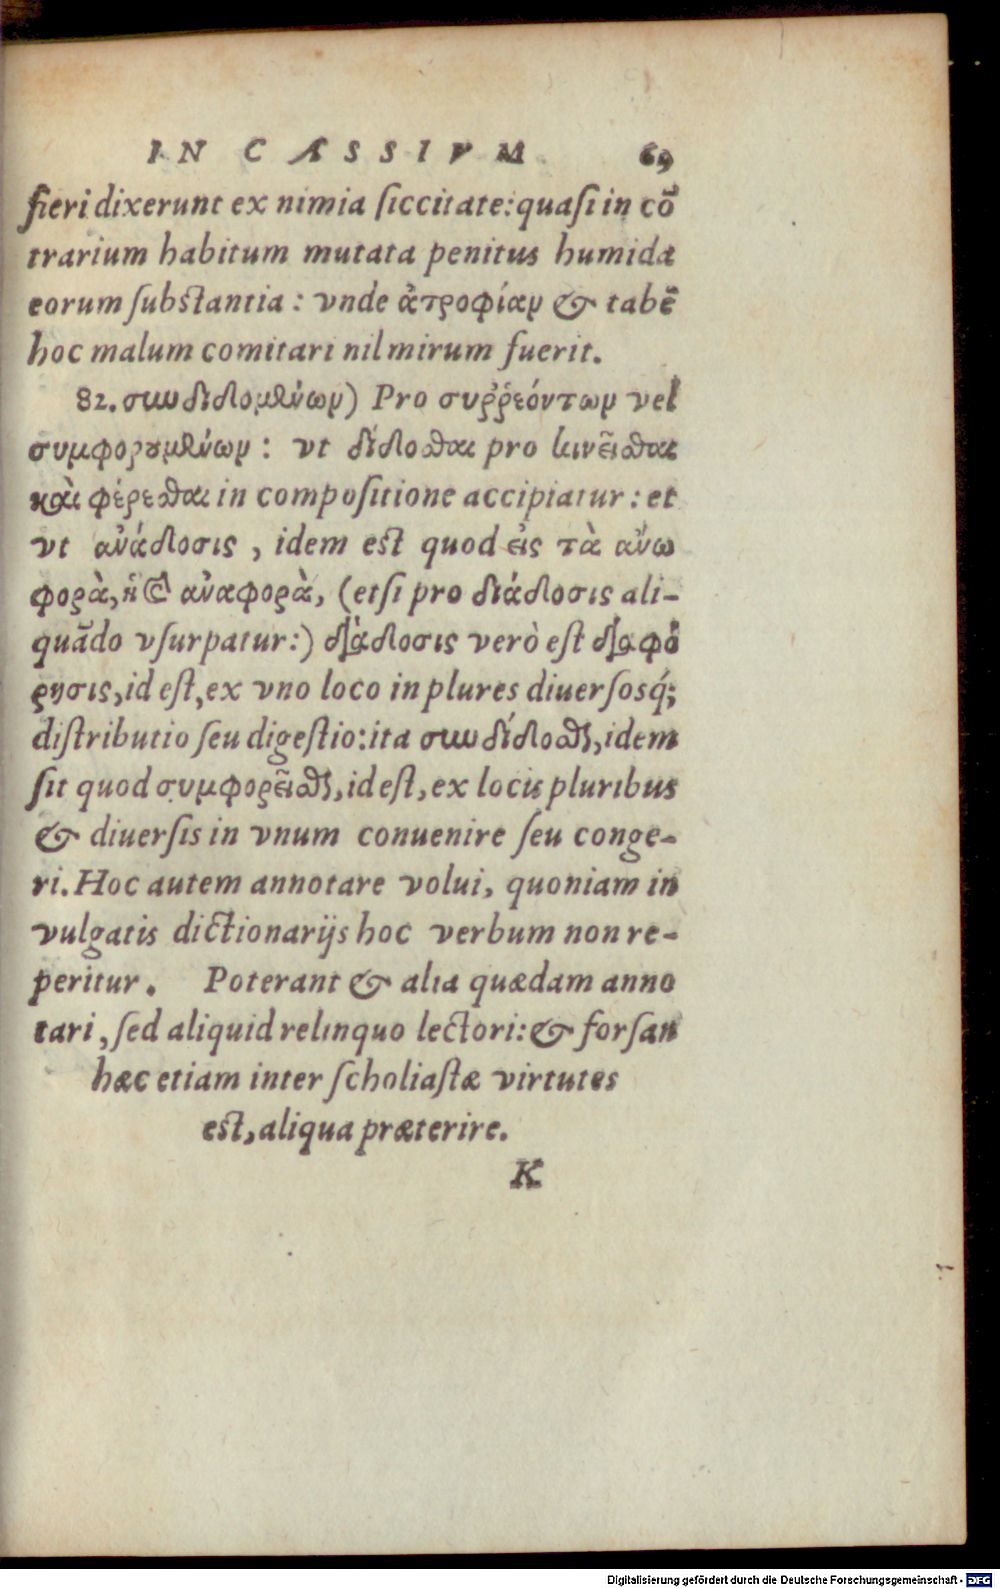 IN CASSIVM 69
fieri dixerunt ex nimia ſiccitate: quaſi in cõ
trarium habitum mutata penitus humida
eorum ſubſtantia: vnde ἀτροφίαν & tabẽ
hoc malum comitari nil mirum fuerit.
82. συνδιδομένων) Pro συῤῥεόντων vel
συμφορουμένων: vt δίδοσθαι pro κινεῖσθαι
καὶ φέρεσθαι in compoſitione accipiatur: et
vt ἀνάδοσις, idem eſt quod εἰς τὰ ἄνω
φορὰ, ἢ ἀναφορὰ, (etſi pro διάδοσις ali-
quãdo vſurpatur:) διάδοσις verò eſt διαφό
ρησις, id eſt, ex vno loco in plures diuerſosq́;
diſtributio ſeu digeſtio: ita συνδίδοσθαι, idem
ſit quod συμφορεῖσθαι, id eſt, ex locis pluribus
& diuerſis in vnum conuenire ſeu conge-
ri. Hoc autem annotare volui, quoniam in
vulgatis dictionarijs hoc verbum non re-
peritur. Poterant & alia quædam anno
tari, ſed aliquid relinquo lectori: & forſan
hæc etiam inter ſcholiaſtæ virtutes
eſt, aliqua præterire.
K
Digitalisierung gefördert durch die Deutsche Forschungsgemeinschaft - DFG